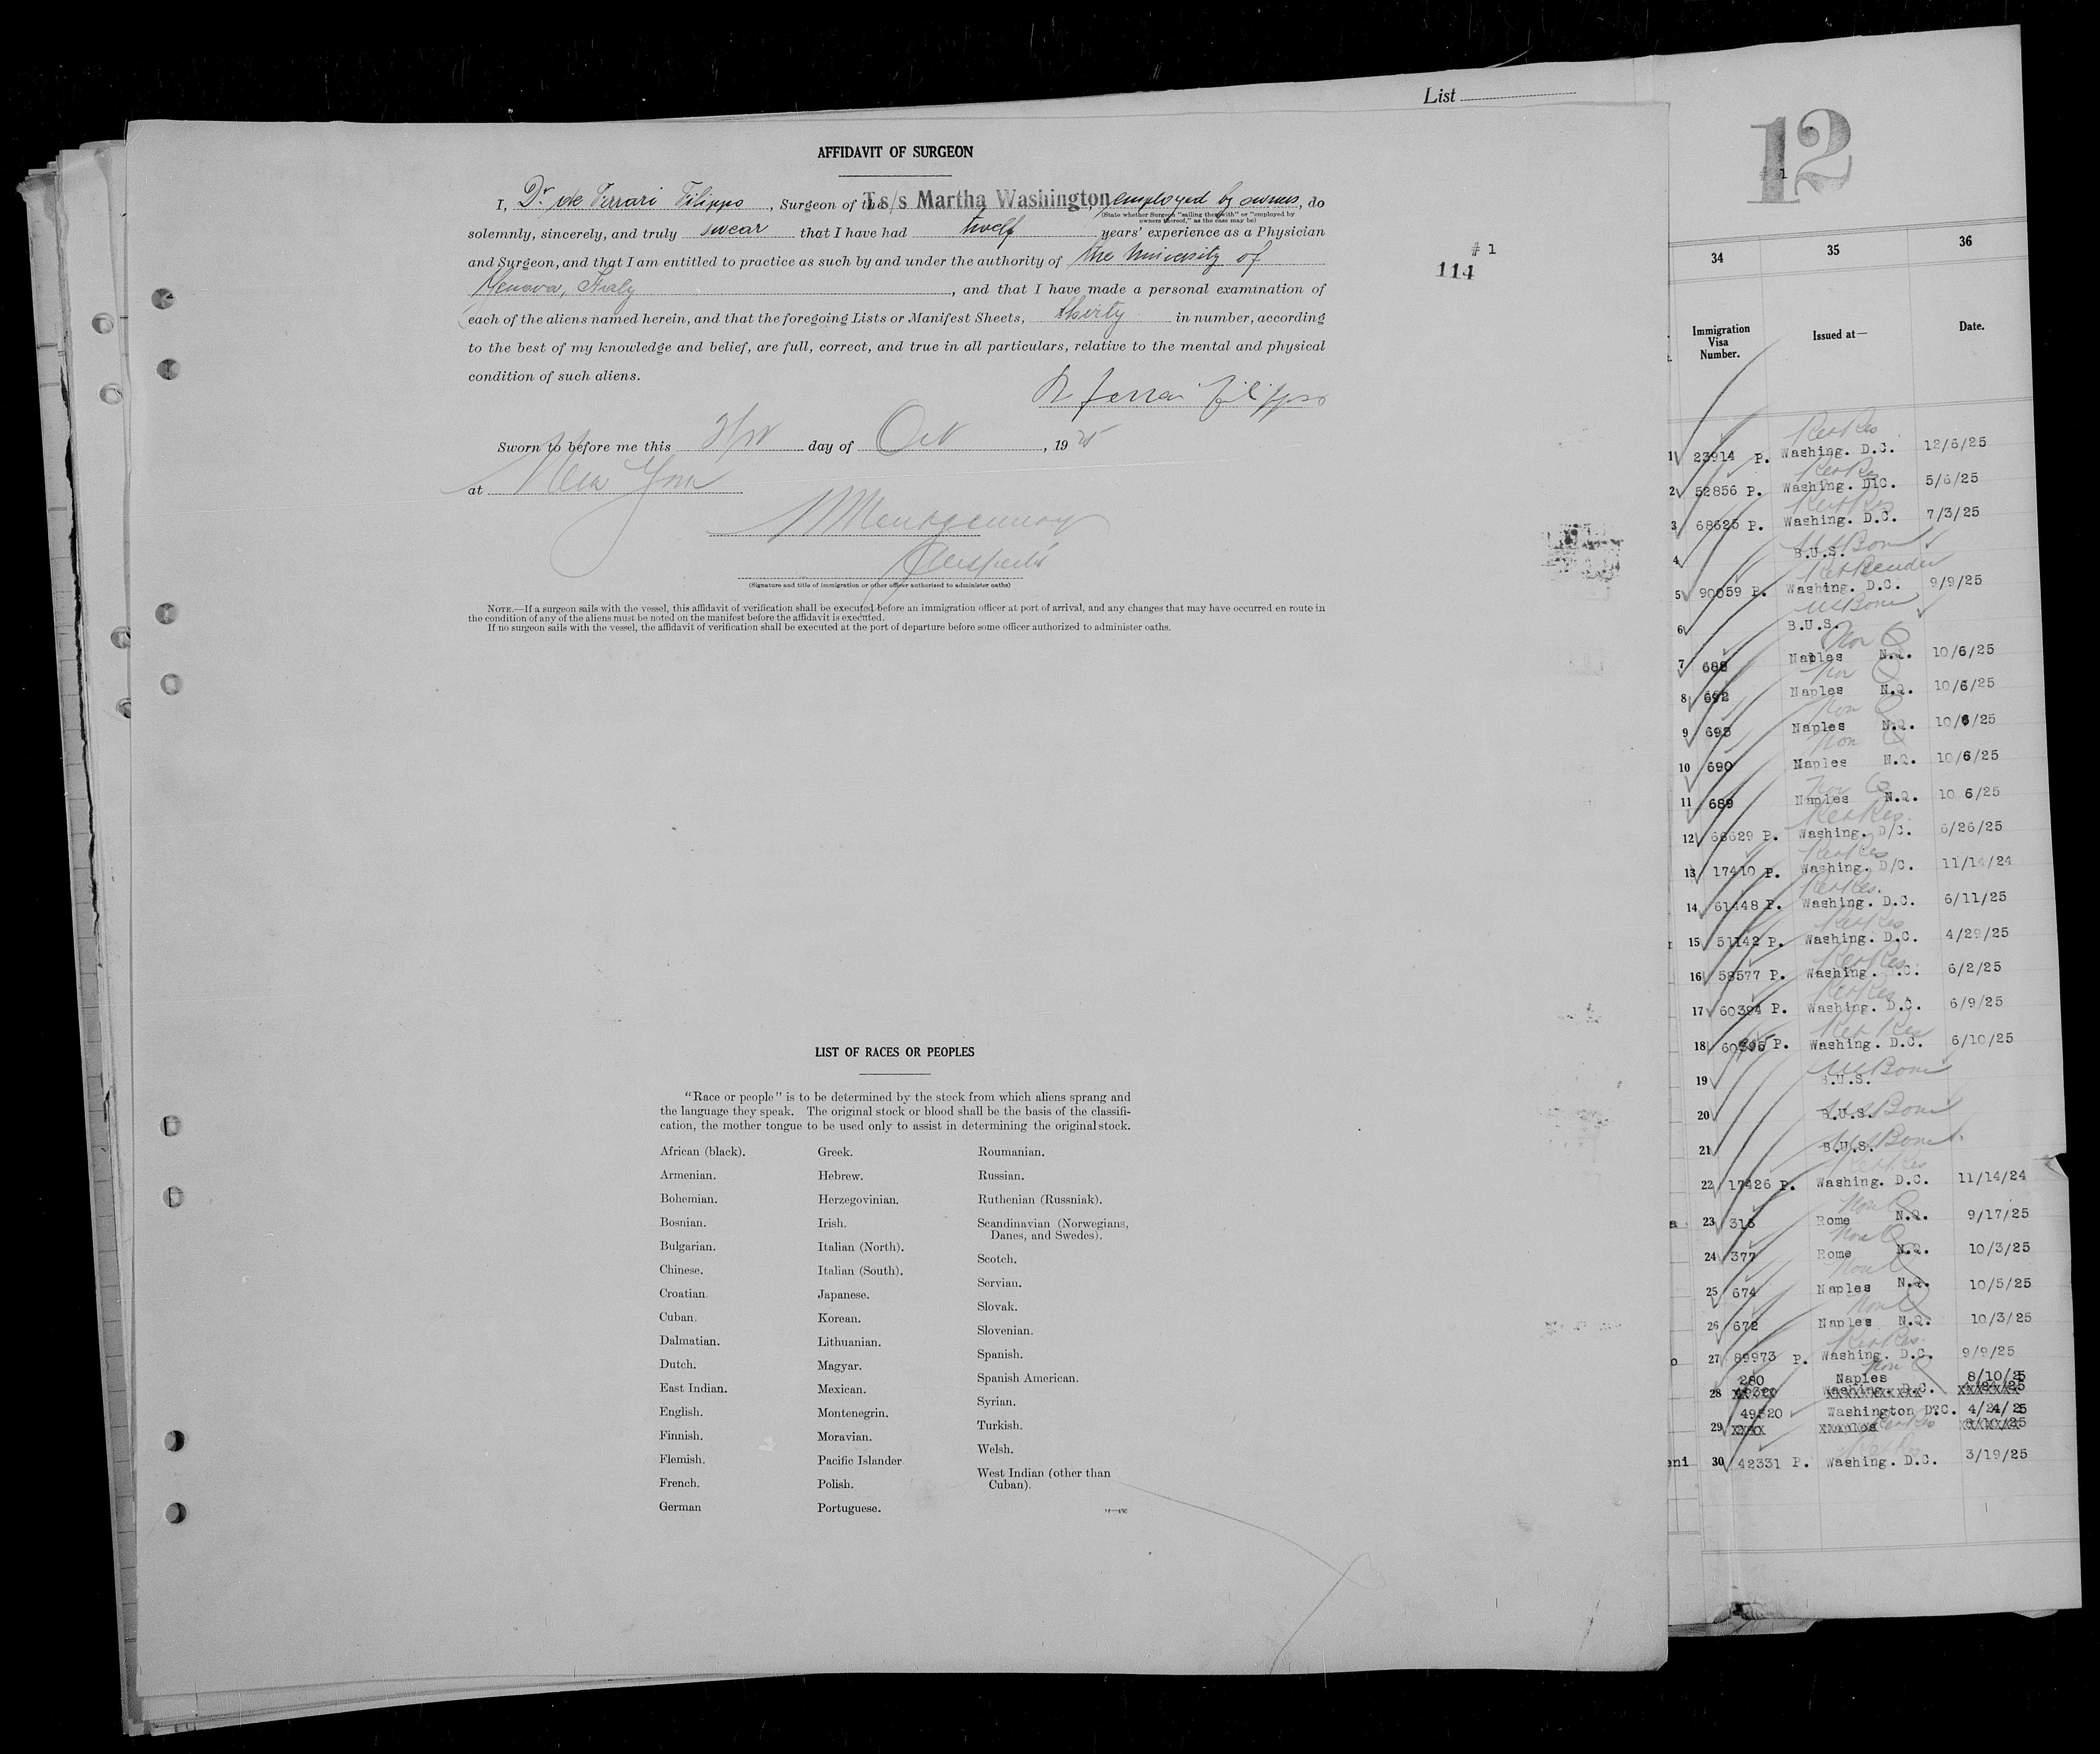 List
AFFIDAVIT OF SURGEON
I, Dr de Ferrari Filippo, Surgeon of the T.s/s Martha Washington, employed by owners, do
(State whether Surgeon "sailing therewith" or "employed by
owners thereof," as the case may be)
solemnly, sincerely, and truly swear that I have had twelf years' experience as a Physician
and Surgeon, and that I am entitled to practice as such by and under the authority of the University of
Genova, Italy, and that I have made a personal examination of
each of the aliens named herein, and that the foregoing Lists or Manifest Sheets, thirty in number, according
to the best of my knowledge and belief, are full, correct, and true in all particulars, relative to the mental and physical
condition of such aliens.
Ferrari Filippo
Sworn to before me this day of Oct, 1925
at New York
Montgomery
(Signature and title of immigration or other officer authorized to administer oaths)
NOTE.—If a surgeon sails with the vessel, this affidavit of verification shall be executed before an immigration officer at port of arrival, and any changes that may have occurred en route in
the condition of any of the aliens must be noted on the manifest before the affidavit is executed.
If no surgeon sails with the vessel, the affidavit of verification shall be executed at the port of departure before some officer authorized to administer oaths.
# 1
114
LIST OF RACES OR PEOPLES
"Race or people" is to be determined by the stock from which aliens sprang and
the language they speak. The original stock or blood shall be the basis of the classifi-
cation, the mother tongue to be used only to assist in determining the original stock.
African (black).
Armenian.
Bohemian.
Bosnian.
Bulgarian.
Chinese.
Croatian.
Cuban.
Dalmatian.
Dutch.
East Indian.
English.
Finnish.
Flemish.
French.
German
Greek.
Hebrew.
Herzegovinian.
Irish.
Italian (North).
Italian (South).
Japanese.
Korean.
Lithuanian.
Magyar.
Mexican.
Montenegrin.
Moravian.
Pacific Islander
Polish.
Portuguese.
Roumanian.
Russian.
Ruthenian (Russniak).
Scandinavian (Norwegians,
Danes, and Swedes).
Scotch.
Servian.
Slovak.
Slovenian.
Spanish.
Spanish American.
Syrian.
Turkish.
Welsh.
West Indian (other than
Cuban).
12
34 35 36
Immigration
Visa
Number.
Issued at—
Date.
1 23914 P. Washing. D.C. 12/6/25
2 52856 P. Washing. D.C. 5/6/25
3 68625 P. Washing. D.C. 7/3/25
4 B.U.S. US Born
5 90059 P. Washing. D.C. 9/9/25
6 B.U.S. US Born
7 688 Naples N.Q. 10/6/25
8 692 Naples N.Q. 10/6/25
9 693 Naples N.Q. 10/6/25
10 690 Naples N.Q. 10/6/25
11 689 Naples N.Q. 10 6/25
12 66629 P. Washing. D/C. 6/26/25
13 17410 P. Washing. D/C. 11/14/24
14 61448 P. Washing. D.C. 6/11/25
15 51142 P. Washing. D.C. 4/29/25
16 58577 P. Washing. .C. 6/2/25
17 60394 P. Washing. D.C. 6/9/25
18 60395 P. Washing. D.C. 6/10/25
19 B.U.S. US Born
20 B.U.S. US Born
21 B.U.S. US Born
22 17426 P. Washing. D.C. 11/14/24
23 316 Rome N.Q. 9/17/25
24 377 Rome N.Q. 10/3/25
25 674 Naples N.Q. 10/5/25
26 672 Naples N.Q. 10/3/25
27 89973 P. Washing. D.C. 9/9/25
28 280 Naples 8/10/25
29 49320 Washington D.C. 4/24/25
30 42331 P. Washing. D.C. 3/19/25